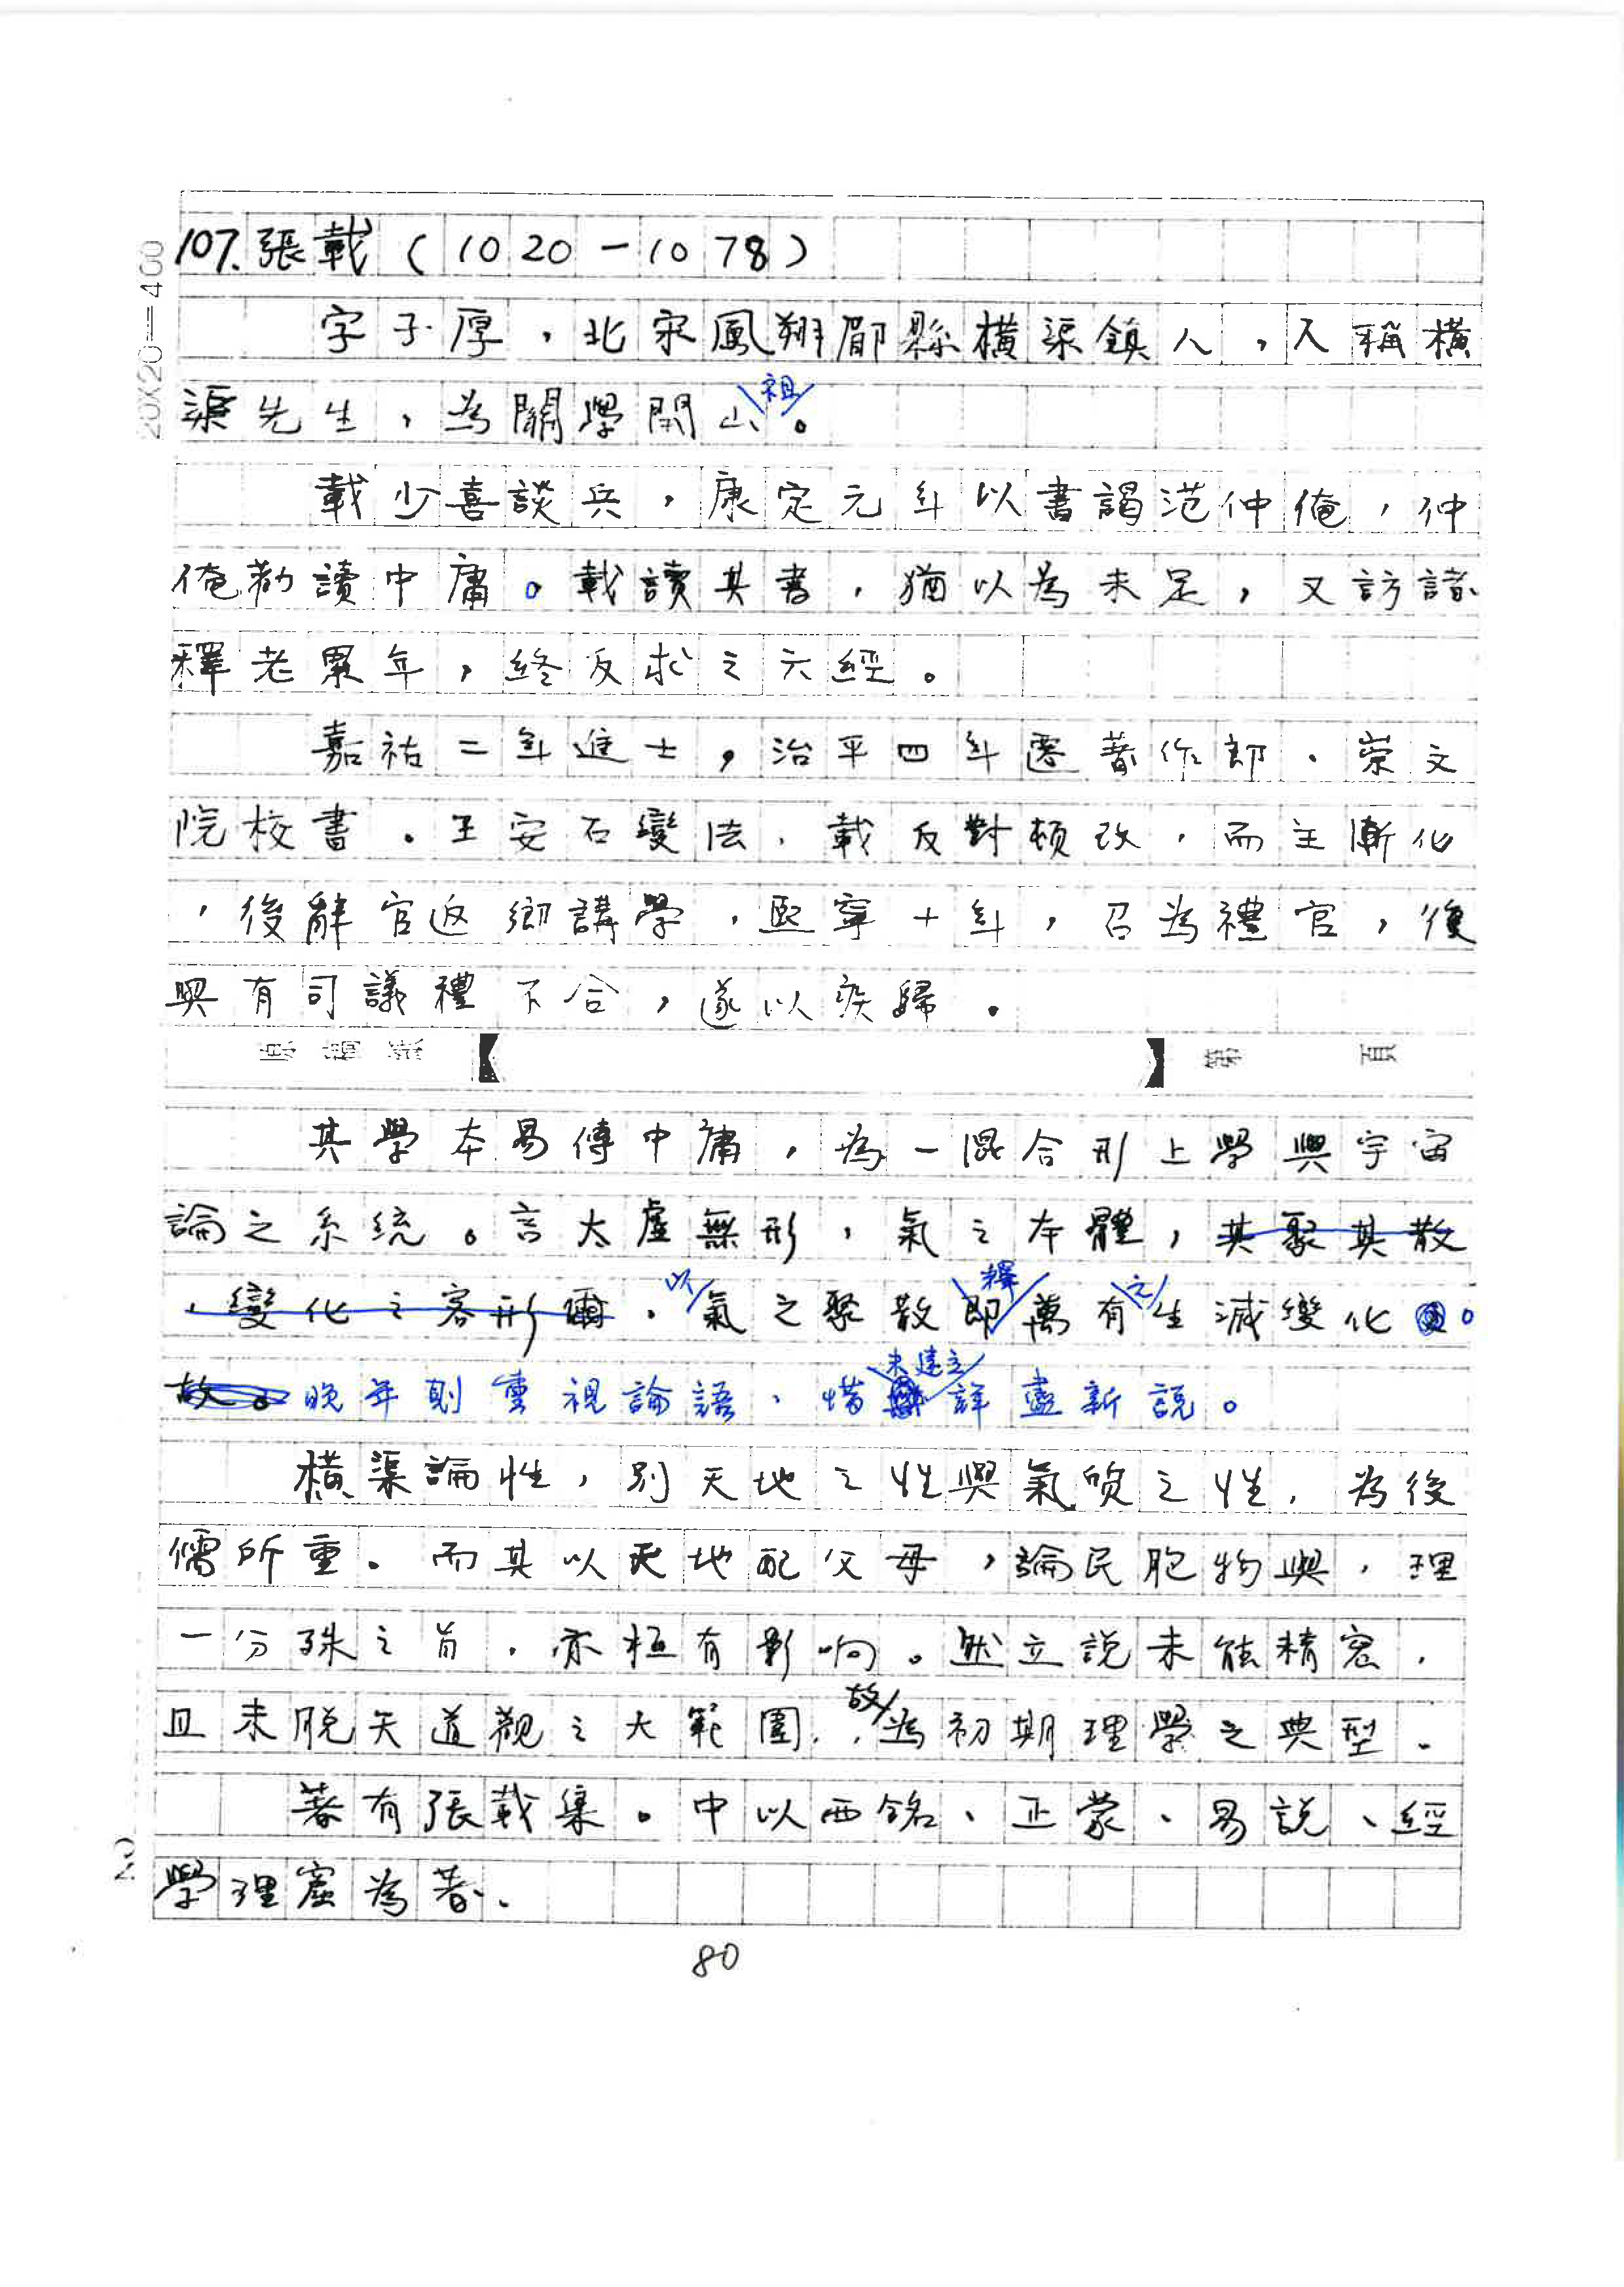 107.張載(1020-1078)
字子厚,北宋鳳翔郿縣橫渠鎮人,人稱橫
渠先生,為關學開山祖。
載少喜談兵,康定元年以書謁范仲俺,仲
俺勸讀中庸。載讀其書,猶以為未足,又訪諸
釋老累年,終反求之六經。
嘉祐二年進士,治平四年遷著作郎、崇文
院校書。王安石變法,載反對頓改,而主漸化
,後辭官返鄉講學,熙寧十年,召為禮官,復
與有司議禮不合,遂以疾歸。
原稿紙【 】第 頁
其學本易傳中庸,為一混合形上學與宇宙
論之系統。言太虛無形,氣之本體,其聚其散
,變化之客形爾。以氣之聚散即釋萬有之生滅變化。
故。晚年則重視論語,惜未建立詳盡新說。
橫渠論性,別天地之性與氣質之性,為後
儒所重。而其以天地配父母,論民胞物與,理
一分殊之旨,亦極有影响。然立說未能精密,
且未脫天道觀之大範圍,故為初期理學之典型。
著有張載集。中以西銘、正蒙、易說、經
學理窟為著。
80
20X20=400
20